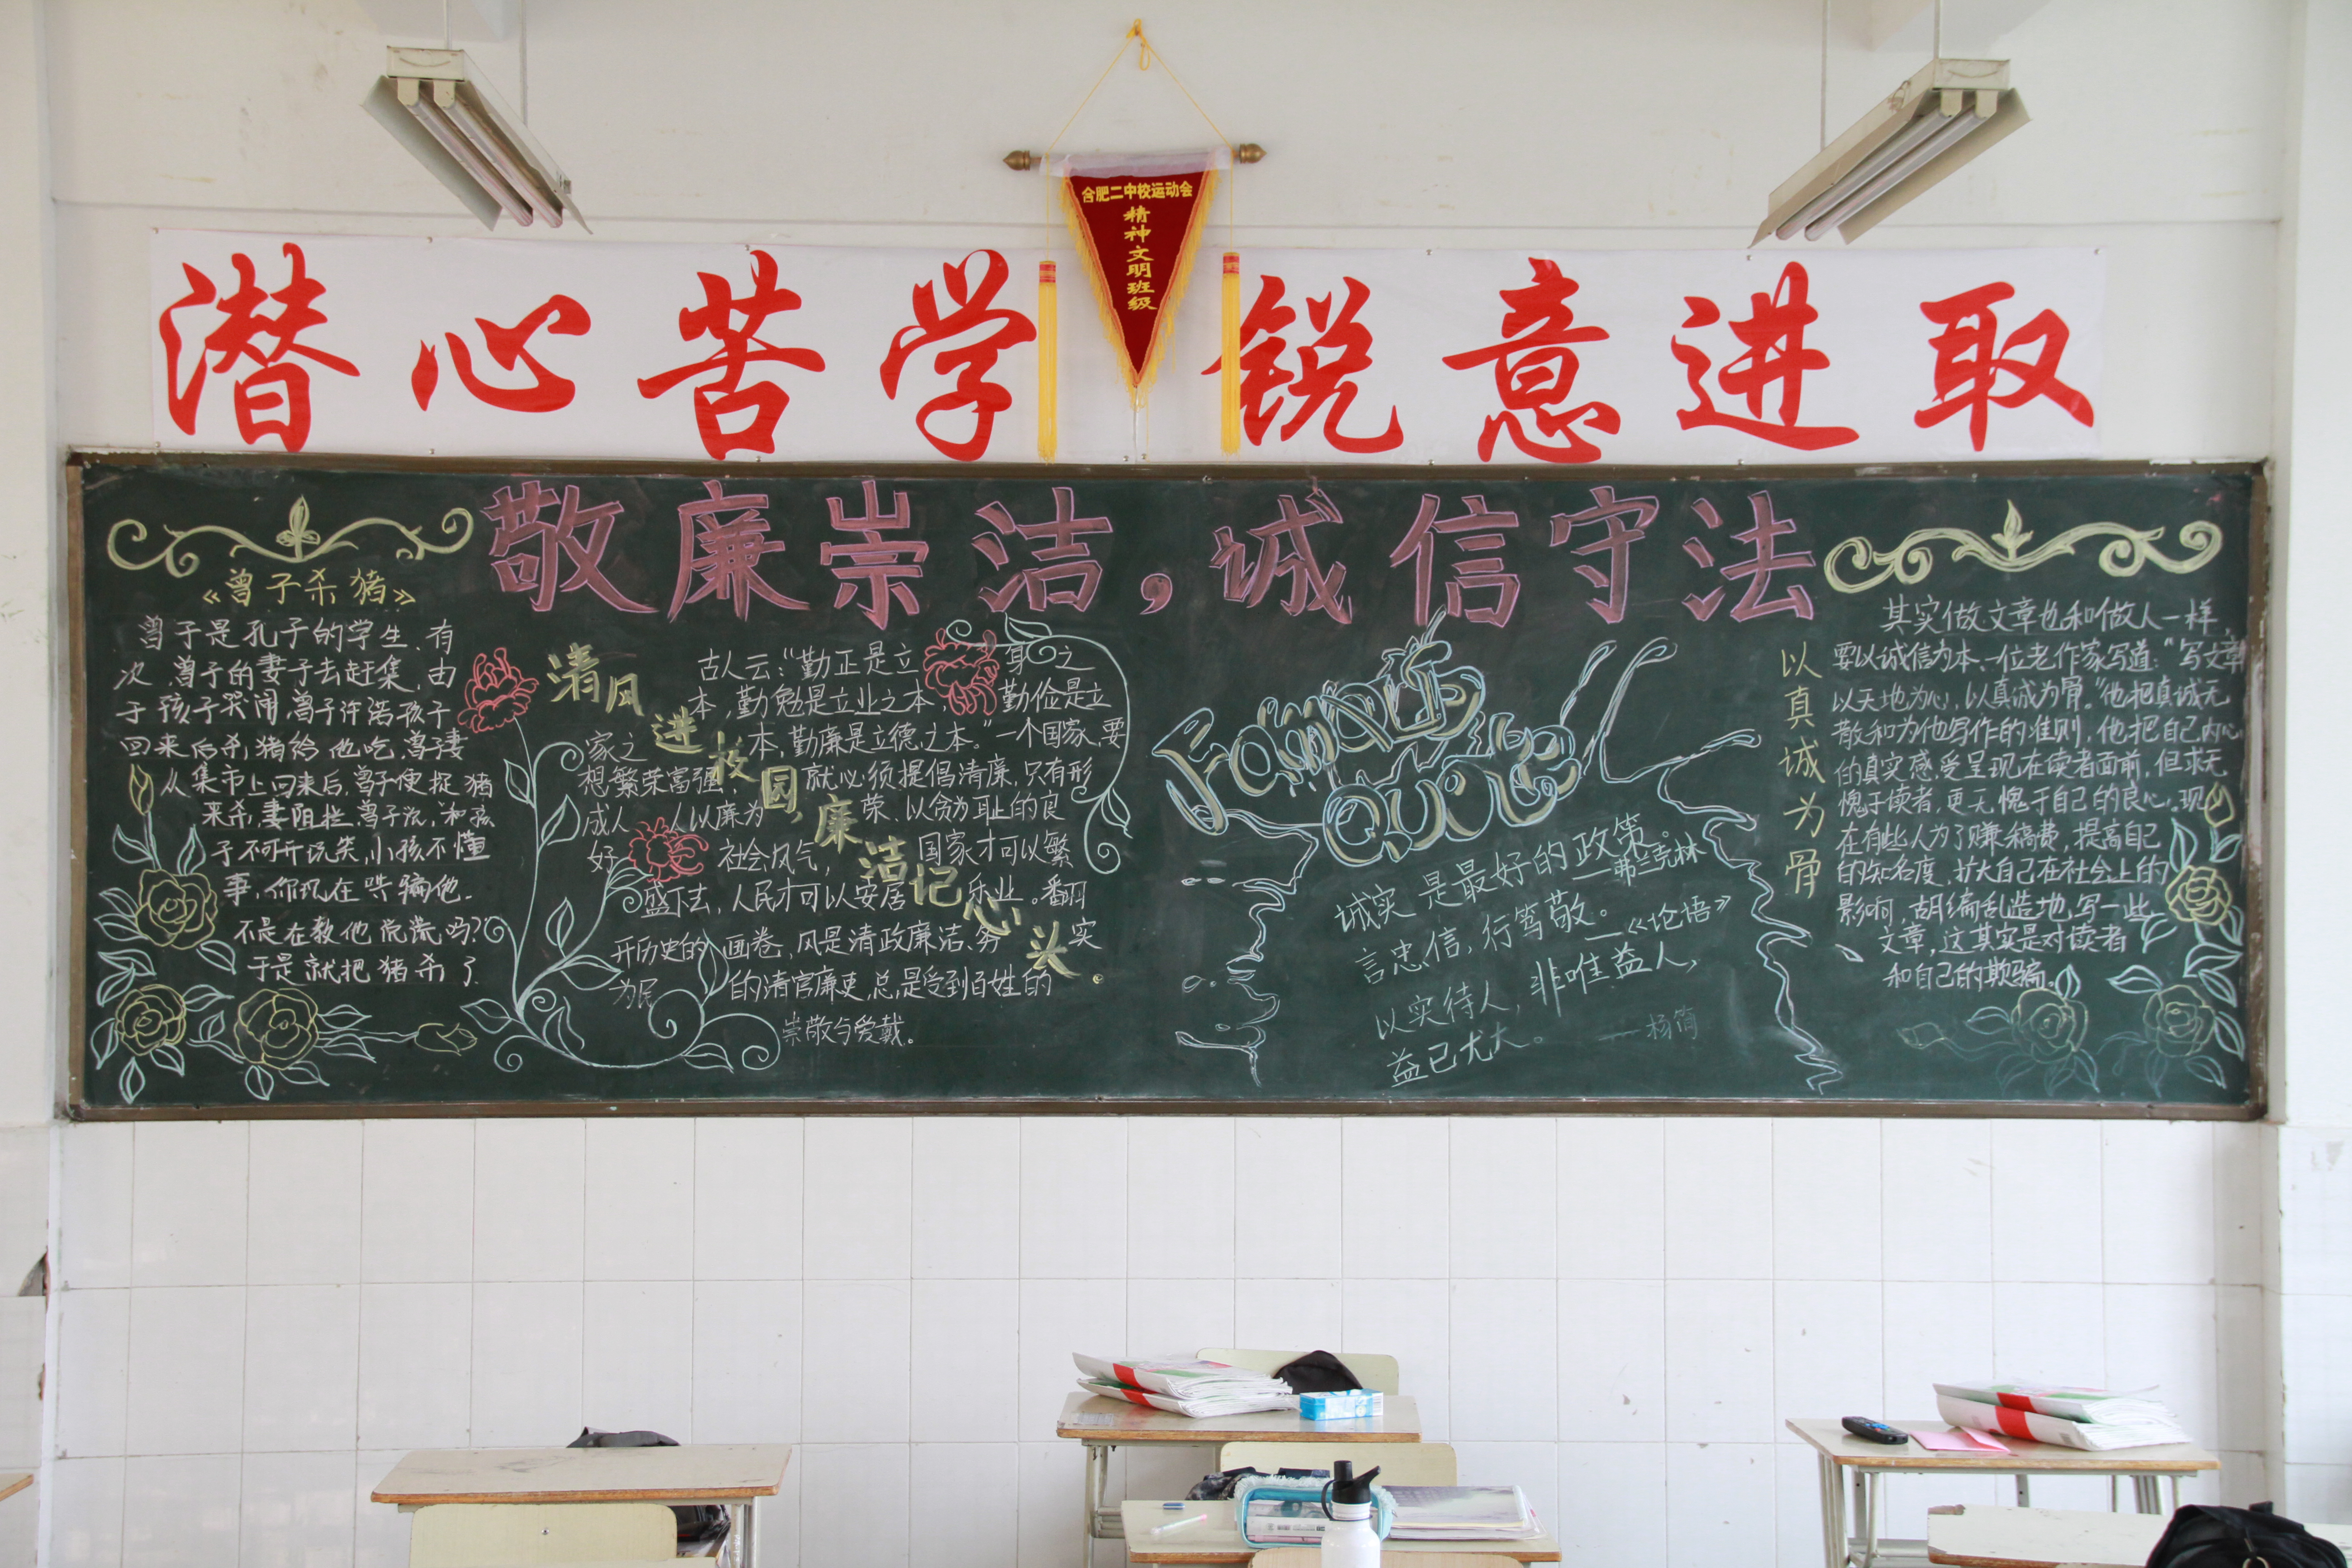 合肥二中校运动会
精神文明班级
潜心苦学 锐意进取
敬廉崇洁，诚信守法
《曾子杀猪》
曾子是孔子的学生.有
次,曾子的妻子去赶集,由
于孩子哭闹,曾子许诺孩子
回来后杀猪给他吃,曾子妻
从集市上回来后,曾子便捉猪
来杀,妻阻拦,曾子说,和孩
子不可开玩笑,小孩不懂
事,你现在哄骗他.
不是在教他说谎吗?
于是就把猪杀了
清风进校园，廉洁记心头。
古人云：“勤正是立身之
本,勤勉是立业之本,勤俭是立
家之本,勤廉是立德之本。”一个国家,要
想繁荣富强，就必须提倡清廉,只有形
成人人以廉为荣、以贪为耻的良
好社会风气，国家才可以繁
盛下去，人民才可以安居乐业。翻
开历史的画卷,风是清政廉洁、务实
为民的清官廉吏,总是受到百姓的
崇敬与爱戴。
Famous
Quote
诚实是最好的政策。
——弗兰克林
言忠信，行笃敬。——《论语》
以实待人，非唯益人，
益己尤大。——杨简
以真诚为骨
其实做文章也和做人一样,
要以诚信为本,一位老作家写道：“写文章
以天地为心，以真诚为骨。”他把真诚无
欺和为他写作的准则，他把自己内心
的真实感受呈现在读者面前，但求无
愧于读者,更无愧于自己的良心,现
在有些人为了赚稿费，提高自己
的知名度，扩大自己在社会上的
影响，胡编乱造地写一些
文章，这其实是对读者
和自己的欺骗。